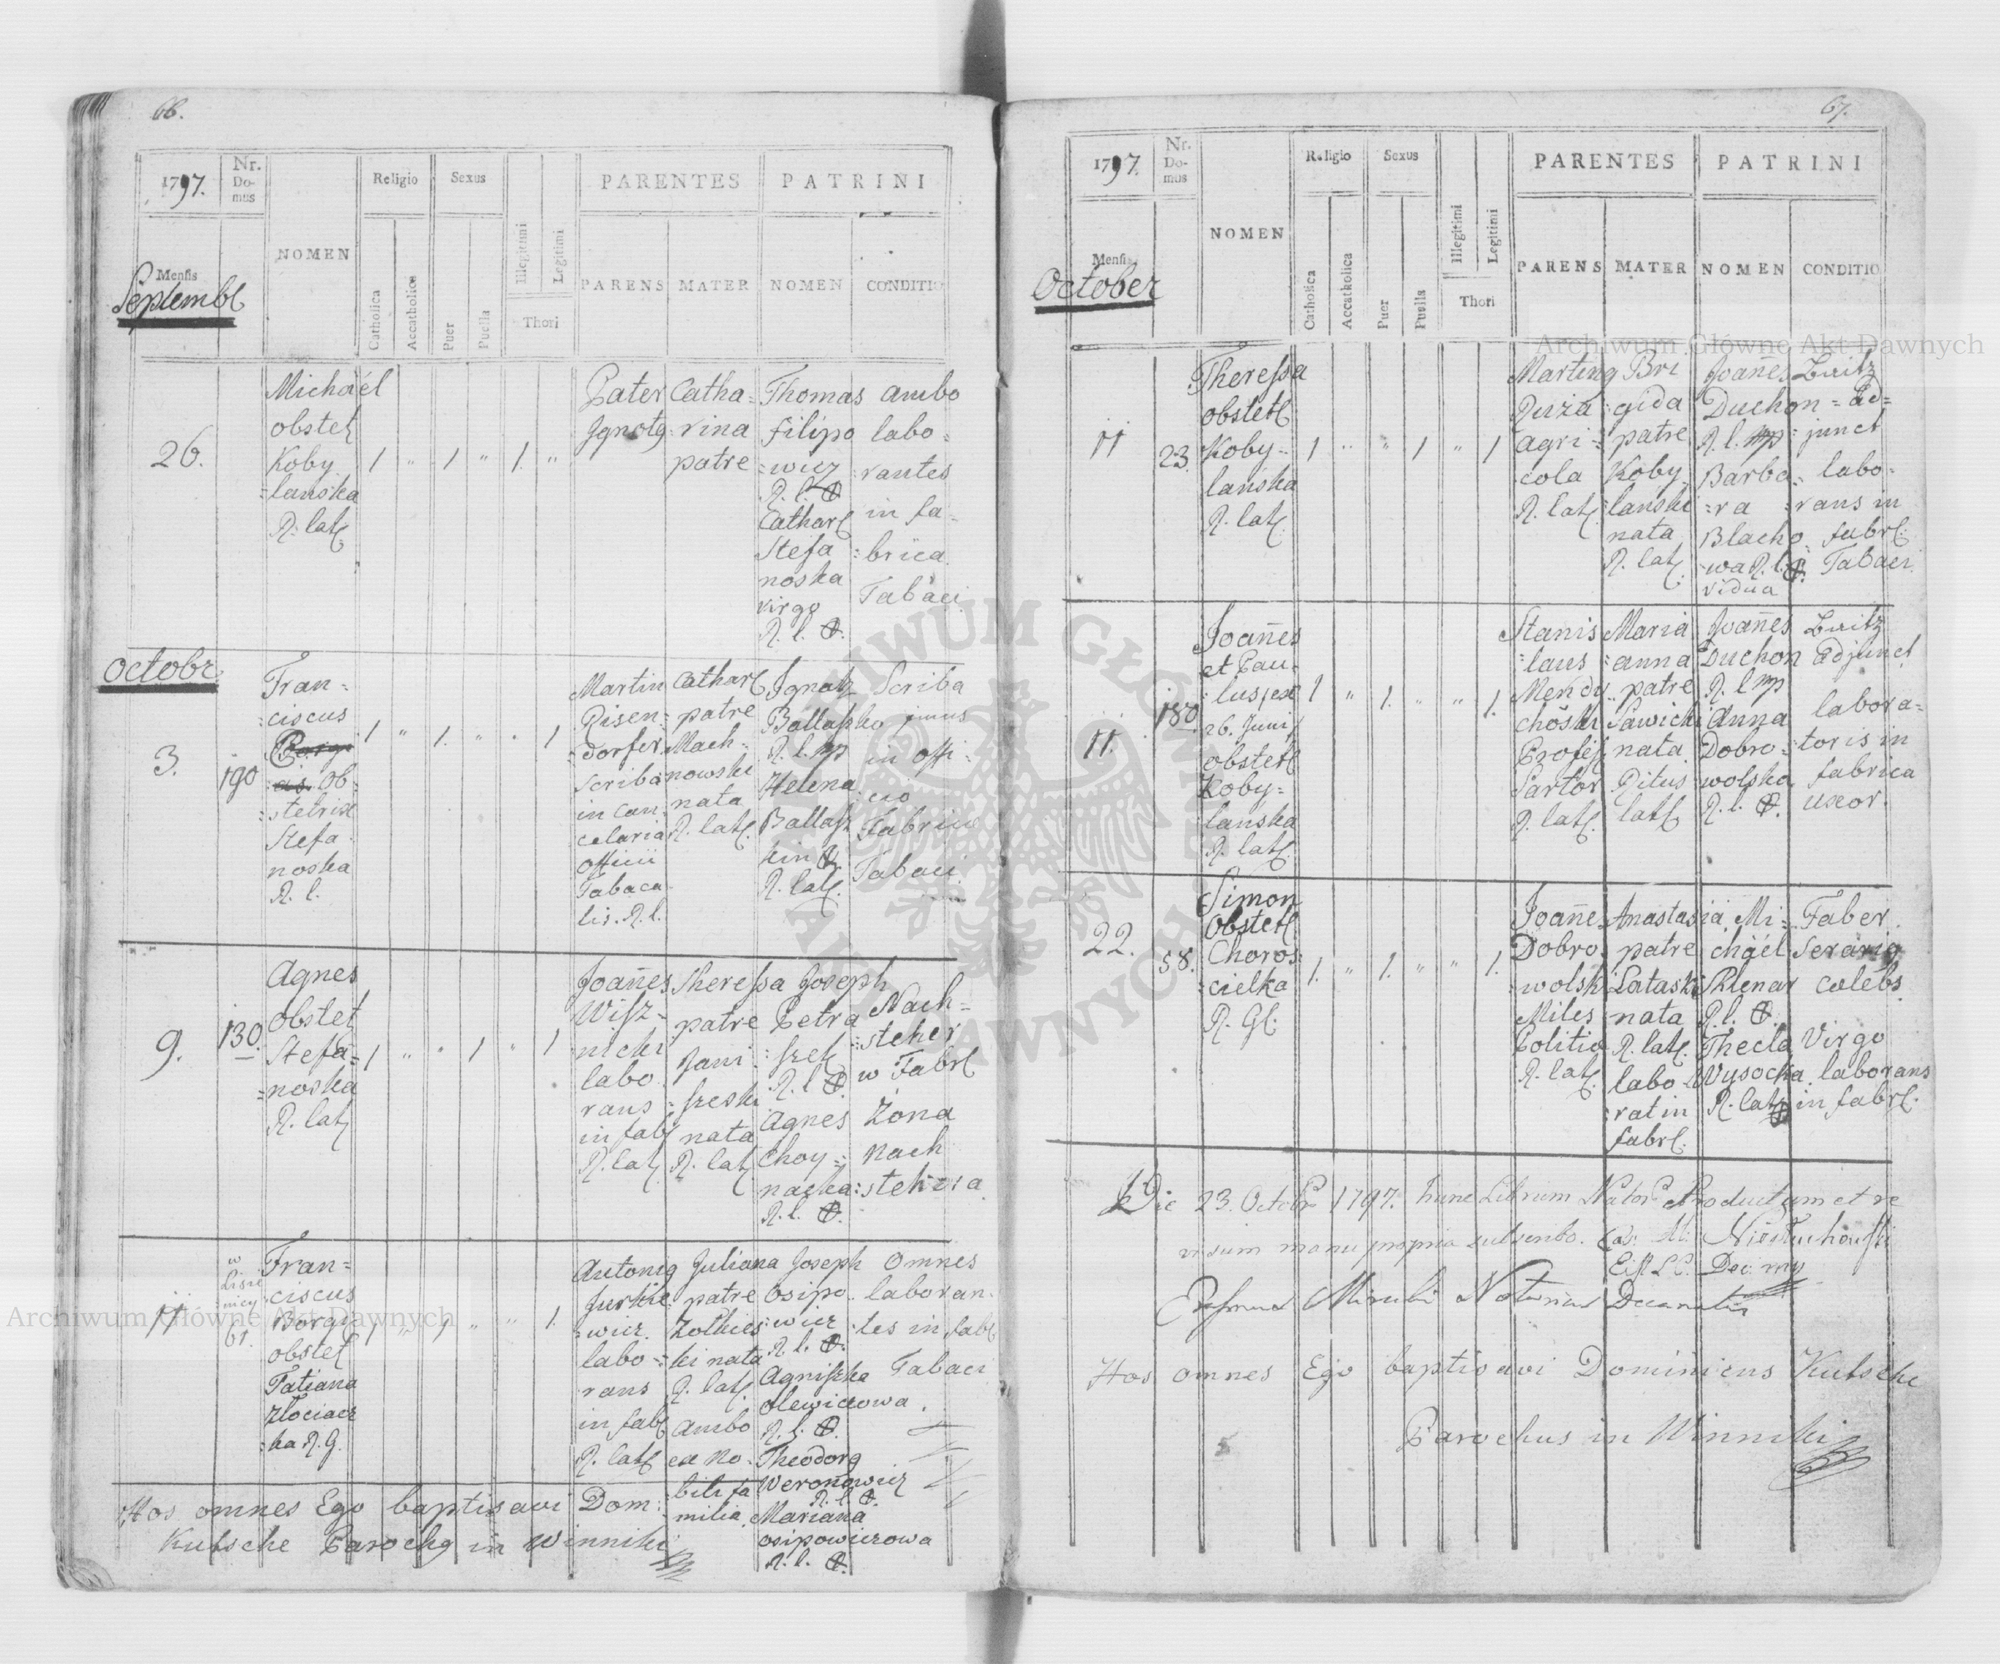 66.
1797.
Nr.
Do-
mus
NOMEN
Religio
Sexus
PARENTES
PATRINI
Mensis
Catholica
Accatholica
Puer
Puella
Illegitimi
Legitimi
Thori
PARENS
MATER
NOMEN
CONDITIO
Septembr
26.
Michaël
obstet
Koby
lanska
R. lat
1 " 1 " 1. "
Pater
Ignotg
Catha
rina
patre
Thomas
Filipo
wicz
R. l.
Cathar
Stefa
noska
virgo
R. l.
ambo
labo
rantes
in fa
brica
Tabaci
Octobr.
3.
190
Fran=
ciscus
ob=
stetrix
Stefa
noska
R. l.
1 " 1. " . 1
Martin
Risen
dorfer
scriba
in can
celaria
officii
Tabaca
lis. R. l.
Cathar
patre
Mach=
nowski
nata
R. lat
Ignatz
Ballasko
R. l.
Helena
Ballass
kin
R. lat.
Scriba
in offi
cio
Fabric
Tabaci
9.
130.
Agnes
obstet
Stefa=
noska
R. lat
1 " " 1 " 1
Joañes
Wisz=
nicki
labo
rans
in fab
R. lat
Theressa
patre
Jani
szeski
nata
R. lat
Joseph
Petra
szek
R. l.
Agnes
Choy=
nacka
R. l.
Nach=
steher
w Fabr
Zona
nach
stehera
11
w
Lisie
nicy
61.
Fran=
ciscus
Borgi
obstet
Tatiana
Złociacz
ka R. G.
1 " 1 " " 1.
Antonig
Jurkie
wicz.
labo=
rans
in fab
R. lat
Juliana
patre
Zolkies
ki nata
R. lat
ambo
ex No
bili fa
milia.
Joseph
Osipo
wicz
R. l.
Agniszka
Olewiczowa.
R. l.
Theodorg
Weronowicz
R. l.
Mariana
osipowiczowa
R. l.
Omnes
laboran
tes in fab
Tabaci
Hos omnes Ego baptisavi Dom:
Kutsche Parochg in Winniki
67.
1797.
Nr.
Do-
mus
NOMEN
Religio
Sexus
PARENTES
PATRINI
Mensis
Catholica
Accatholica
Puer
Puella
Illegitimi
Legitimi
Thori
PARENS
MATER
NOMEN
CONDITIO
October
11
23.
Theressa
obstet
Koby=
lanska
R. lat
1 " " 1 " 1
Marting
agri=
cola
R. lat
Bri
gida
patre
Koby
lanski
nata
R. lat
Joanes
Duchon
R. l.
Barba
ra
Blacho
wa R. l.
vidua
Ad=
junct
labo
rans in
fabr.
Tabaci.
11.
180
Joañes
et Pau
lus
26. Juni
obstet
Koby=
lanska
R. lat
1 " 1. " " 1.
Stanis
laus
Sartor
R. lat
Maria
anna
patre
Sawicki
nata
Ritus
lat
Joañes
Duchon
R. l.
Anna
Dobro
wolska
R. l.
Adjunct
labora=
toris in
fabrica
uxor.
22.
58.
Simon
Obstet
Choros
cielka
R. G.
1. " 1. " " 1.
Joañe
Dobro
wolski
Miles
Politio
R. lat
Anastasia
patre
Lataski
nata
R. lat.
labo
rat in
fabr.
Mi=
chael
R. l.
Thecla
Wysocka
R. lat
Faber
Serarig
celebs
Virgo
laborans
in fabr.
Die 23. Octobr 1797. hunc Librum Nator Productum et re
visum manu propria subscribo.
Notarius Decanatus
Hos omnes Ego baptisavi Dominicus Kutsche
Parochus in Winniki
Archiwum Główne Akt Dawnych
Archiwum Główne Akt Dawnych
ARCHIWUM GŁÓWNE AKT DAWNYCH